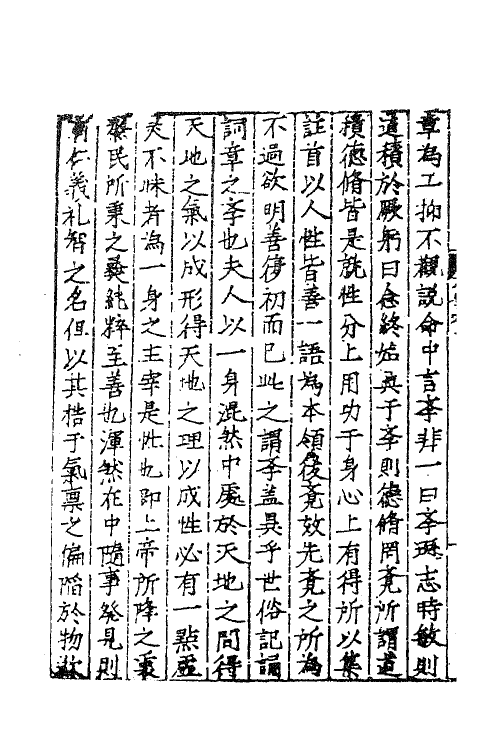 章為工抑不觀説命中言斈非一曰斈遜志時敏則
道積於厥躬曰念終始典于斈則德脩罔覔所謂道
積德脩皆是就性分上用功于身心上有得所以集
註首以人性皆善一語為本領後覔效先覔之所為
不過欲明善復初而已此之謂斈盖異乎世俗記誦
詞章之斈也夫人以一身混然中處於天地之間得
天地之氣以成形得天地之理以成性必有一點虛
灵不昧者為一身之主宰是性也即上帝所降之衷
烝民所秉之彝純粹至善也渾然在中隨事發見則
有仁義礼智之名但以其梏于氣禀之偏陷於物欲